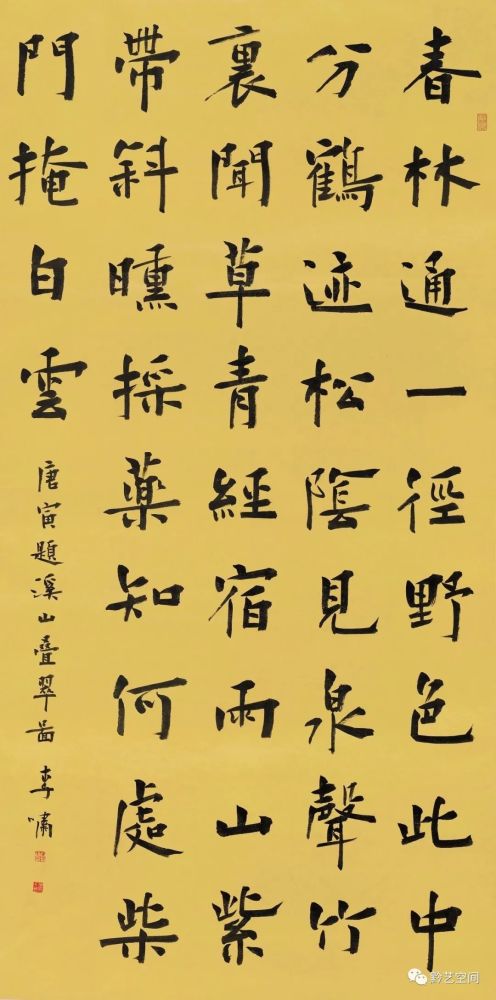 春林通一徑野色此中
分鶴迹松陰見泉聲竹
裏聞草青經宿雨山紫
帶斜曛採藥知何處柴
門掩白雲
唐寅題溪山疊翠畐 李嘯
黔艺空间